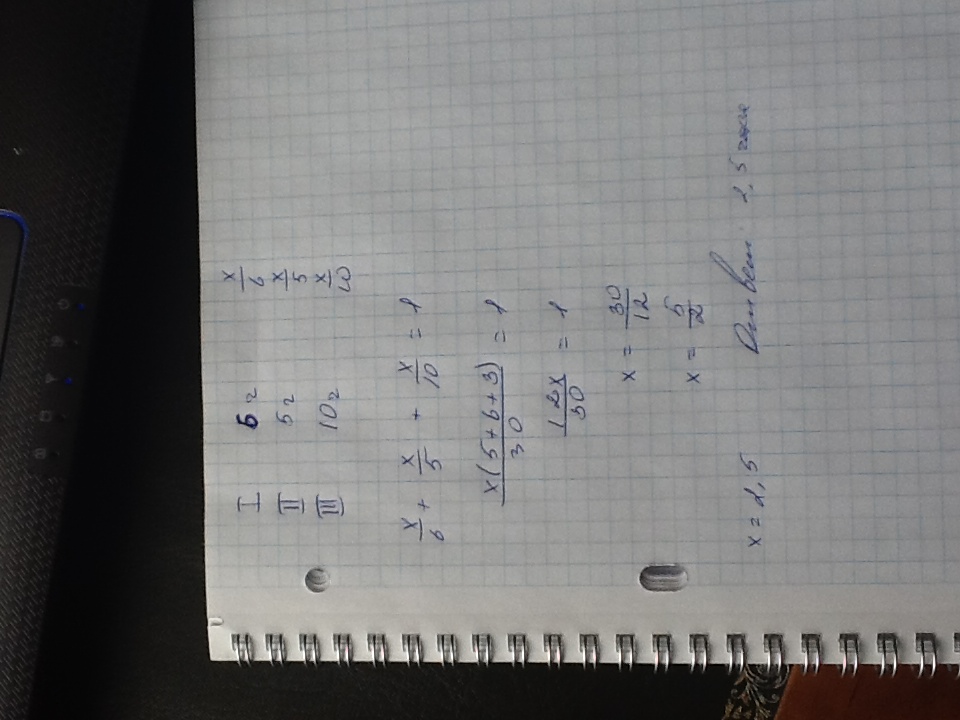 I 6г x/6
II 5г x/5
III 10г x/10
x/6 + x/5 + x/10 = 1
x(5+6+3)/30 = 1
12x/30 = 1
x = 30/12
x = 5/2
x = 2,5 Ответ: 2,5